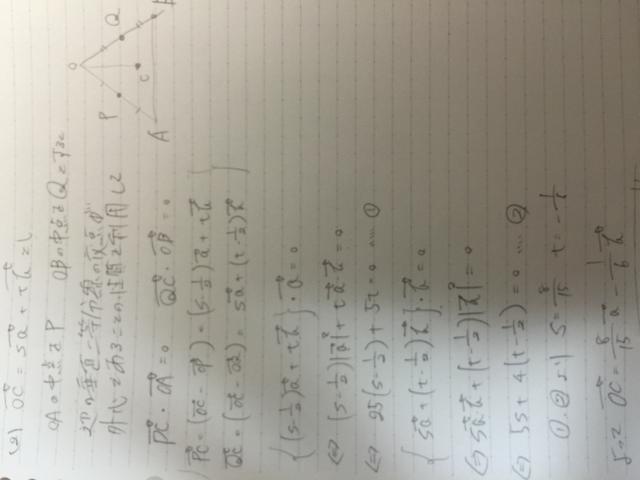 (2) OC⃗ = sa⃗ + tb⃗ とし
OAの中点をP OBの中点をQとすると
辺の垂直二等分線の交点が
外心であることの性質を利用して
PC⃗・OA⃗ = 0 QC⃗・OB⃗ = 0
PC⃗ = (OC⃗ - OP⃗) = (s-1/2)a⃗ + tb⃗
QC⃗ = (OC⃗ - OQ⃗) = sa⃗ + (t-1/2)b⃗
{(s-1/2)a⃗ + tb⃗}・a⃗ = 0
⇔ (s-1/2)|a⃗|² + ta⃗・b⃗ = 0
⇔ 25(s-1/2) + 5t = 0 … ①
{sa⃗ + (t-1/2)b⃗}・b⃗ = 0
⇔ sa⃗・b⃗ + (t-1/2)|b⃗|² = 0
⇔ 5s + 4(t-1/2) = 0 … ②
①,②より s = 8/15 t = -1/6
よって OC⃗ = 8/15 a⃗ - 1/6 b⃗
O
P
Q
C
A
B